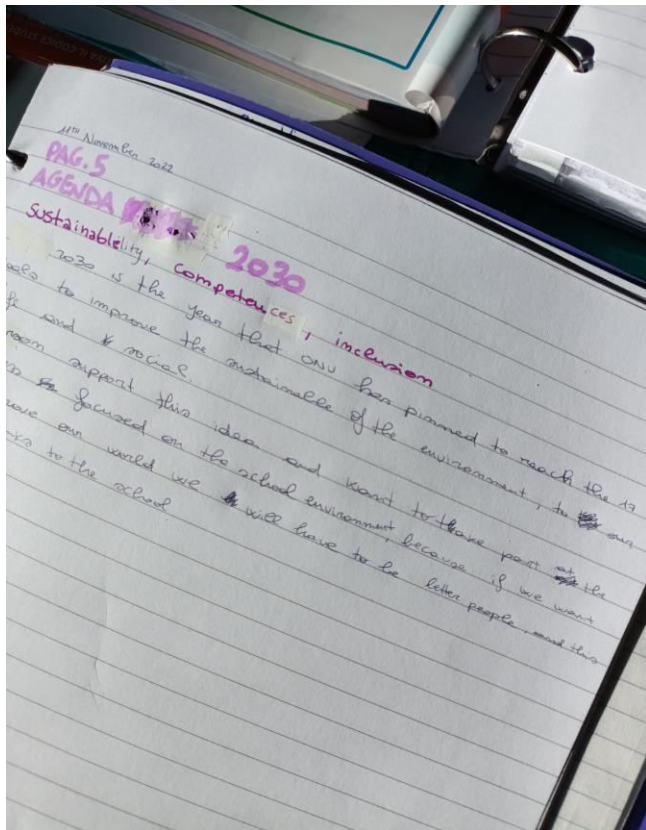 11TH November 2022
PAG. 5
AGENDA 2030
sustainablelity, competences, inclusion
2030 is the year that ONU has pinned to reach the 17
to improve the sustainable of the environment, to our
and social.
support this idea and want to take part at the
focused on the school environment, because if we want
our world we will have to be better people, and this
to the school